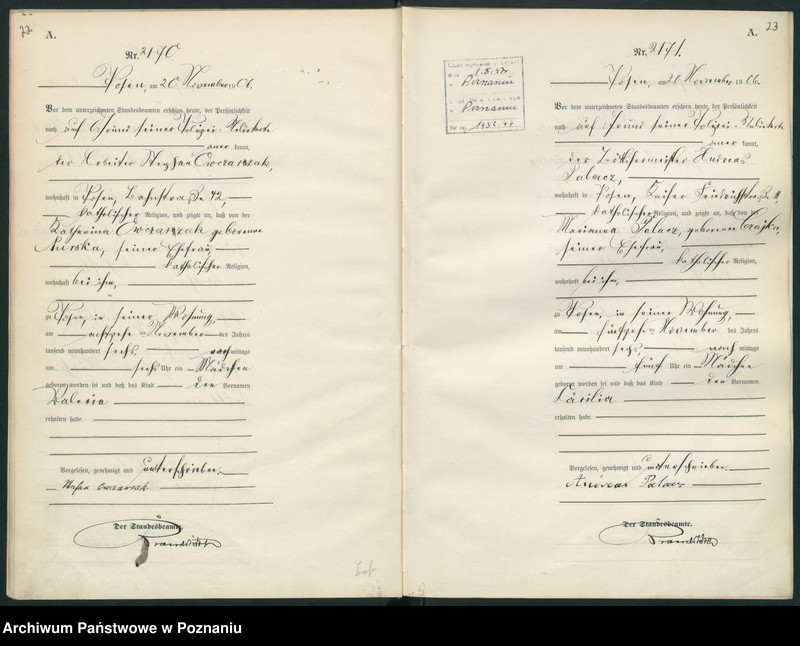 22
A.
Nr. 2170
Posen, am 20 November 1906.
Vor dem unterzeichneten Standesbeamten erschien heute, der Persönlichkeit
nach auf Grund seiner Polizei-Meldekarte
anerkannt,
der Arbeiter Stephan Owczarzak,
wohnhaft in Posen, Bahnstraße 42,
katholischer Religion, und zeigte an, daß von der
Katharina Owczarzak geborenen
seiner Ehefrau,
katholischer Religion,
wohnhaft bei ihm,
zu Posen, in seiner Wohnung,
am November des Jahres
tausend neunhundert sechs, nachmittags
um sechs Uhr ein Mädchen
geboren worden sei und daß das Kind den Vornamen
Valeria
erhalten habe.
Vorgelesen, genehmigt und unterschrieben.
Stefan Owczarzak
Der Standesbeamte.
23
A.
Nr. 2171.
Posen, am 20 November 1906.
Vor dem unterzeichneten Standesbeamten erschien heute, der Persönlichkeit
nach auf Grund seiner Polizei-Meldekarte
anerkannt,
der Böttchermeister Andreas
Palacz,
wohnhaft in Posen, Kaiser Friedrichstraße
katholischer Religion, und zeigte an, daß von der
Marianna Palacz, geborenen Czajka,
seiner Ehefrau,
katholischer Religion,
wohnhaft bei ihm,
zu Posen, in seiner Wohnung,
am November des Jahres
tausend neunhundert sechs, nachmittags
um fünf Uhr ein Mädchen
geboren worden sei und daß das Kind den Vornamen
Cäcilia
erhalten habe.
Vorgelesen, genehmigt und unterschrieben.
Andreas Palacz
Der Standesbeamte.
Archiwum Państwowe w Poznaniu